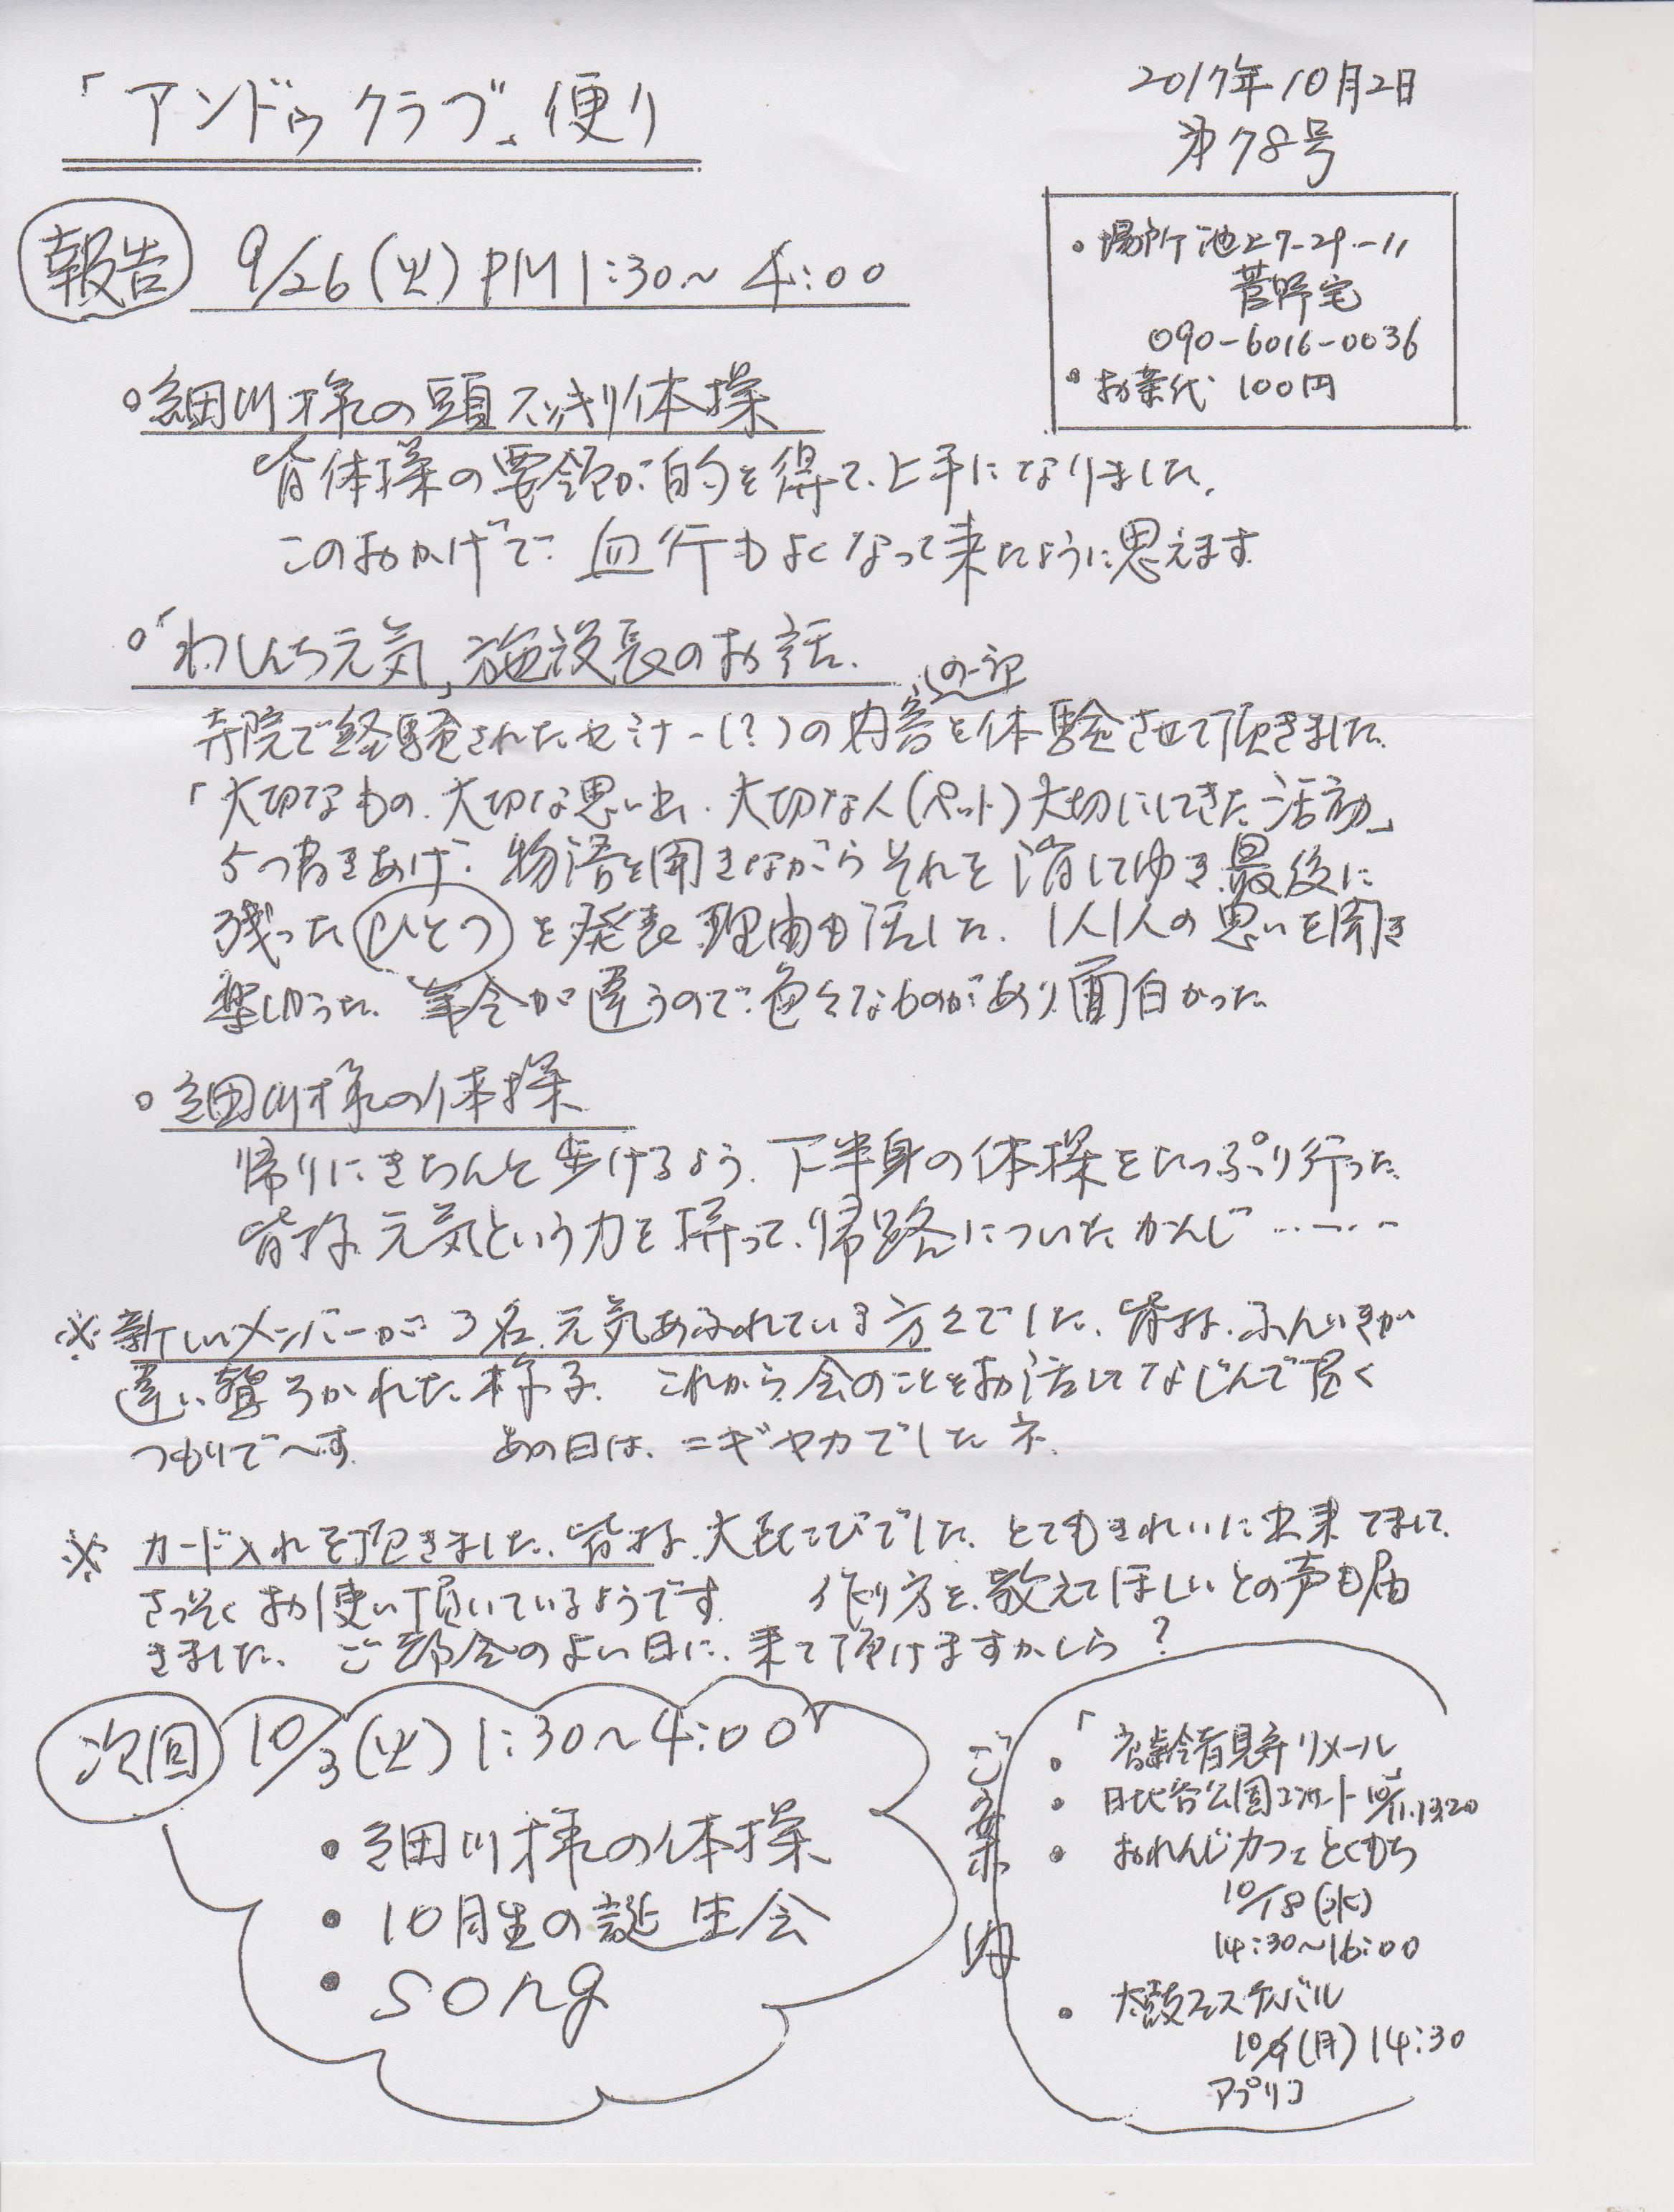 「アンドゥクラブ」便り
2017年10月2日
第78号
・場所 池上7-29-11
菅野宅
090-6016-0036
・お茶代 100円
報告 9/26(火)PM1:30~4:00
○細川様の頭スッキリ体操
皆体操の要領が的を得て、上手になりました。
このおかげで、血行もよくなって来たように思えます
○「わしんち元気」施設長のお話
の一部
寺院で経験されたセミナー(?)の内容を体験させて頂きました。
「大切なもの、大切な思い出、大切な人(ペット)大切にしてきた活動」
5つ書きあげ、物語を聞きながらそれを消してゆき、最後に
残ったひとつを発表 理由も話した。1人1人の思いを聞き
楽しかった。年令が違うので、色々なものがあり面白かった
○細川様の体操
帰りにきちんと歩けるよう、下半身の体操をたっぷり行った
皆様 元気という力を持って、帰路についたかんじ………
※新しいメンバーが3名、元気あふれている方々でした、皆様、ふんいきが
違い驚ろかれた様子。これから、会のことをお話してなじんで頂く
つもりで~す あの日は、ニギヤカでしたネ。
※カード入れを頂きました。皆様、大よろこびでした。とてもきれいに出来てまして、
さっそくお使い頂いているようです 作り方を、教えてほしいとの声も届
きました。ご都合のよい日に、来て頂けますかしら?
次回 10/3(火)1:30~4:00
・細川様の体操
・10月生の誕生会
・song
ご案内
・「高齢者見守りメール」
・日比谷公園コンサート 10/11.13:20
・おれんじカフェ とくもち
10/18(水)
14:30~16:00
・太鼓フェスティバル
10/9(月)14:30
アプリコ